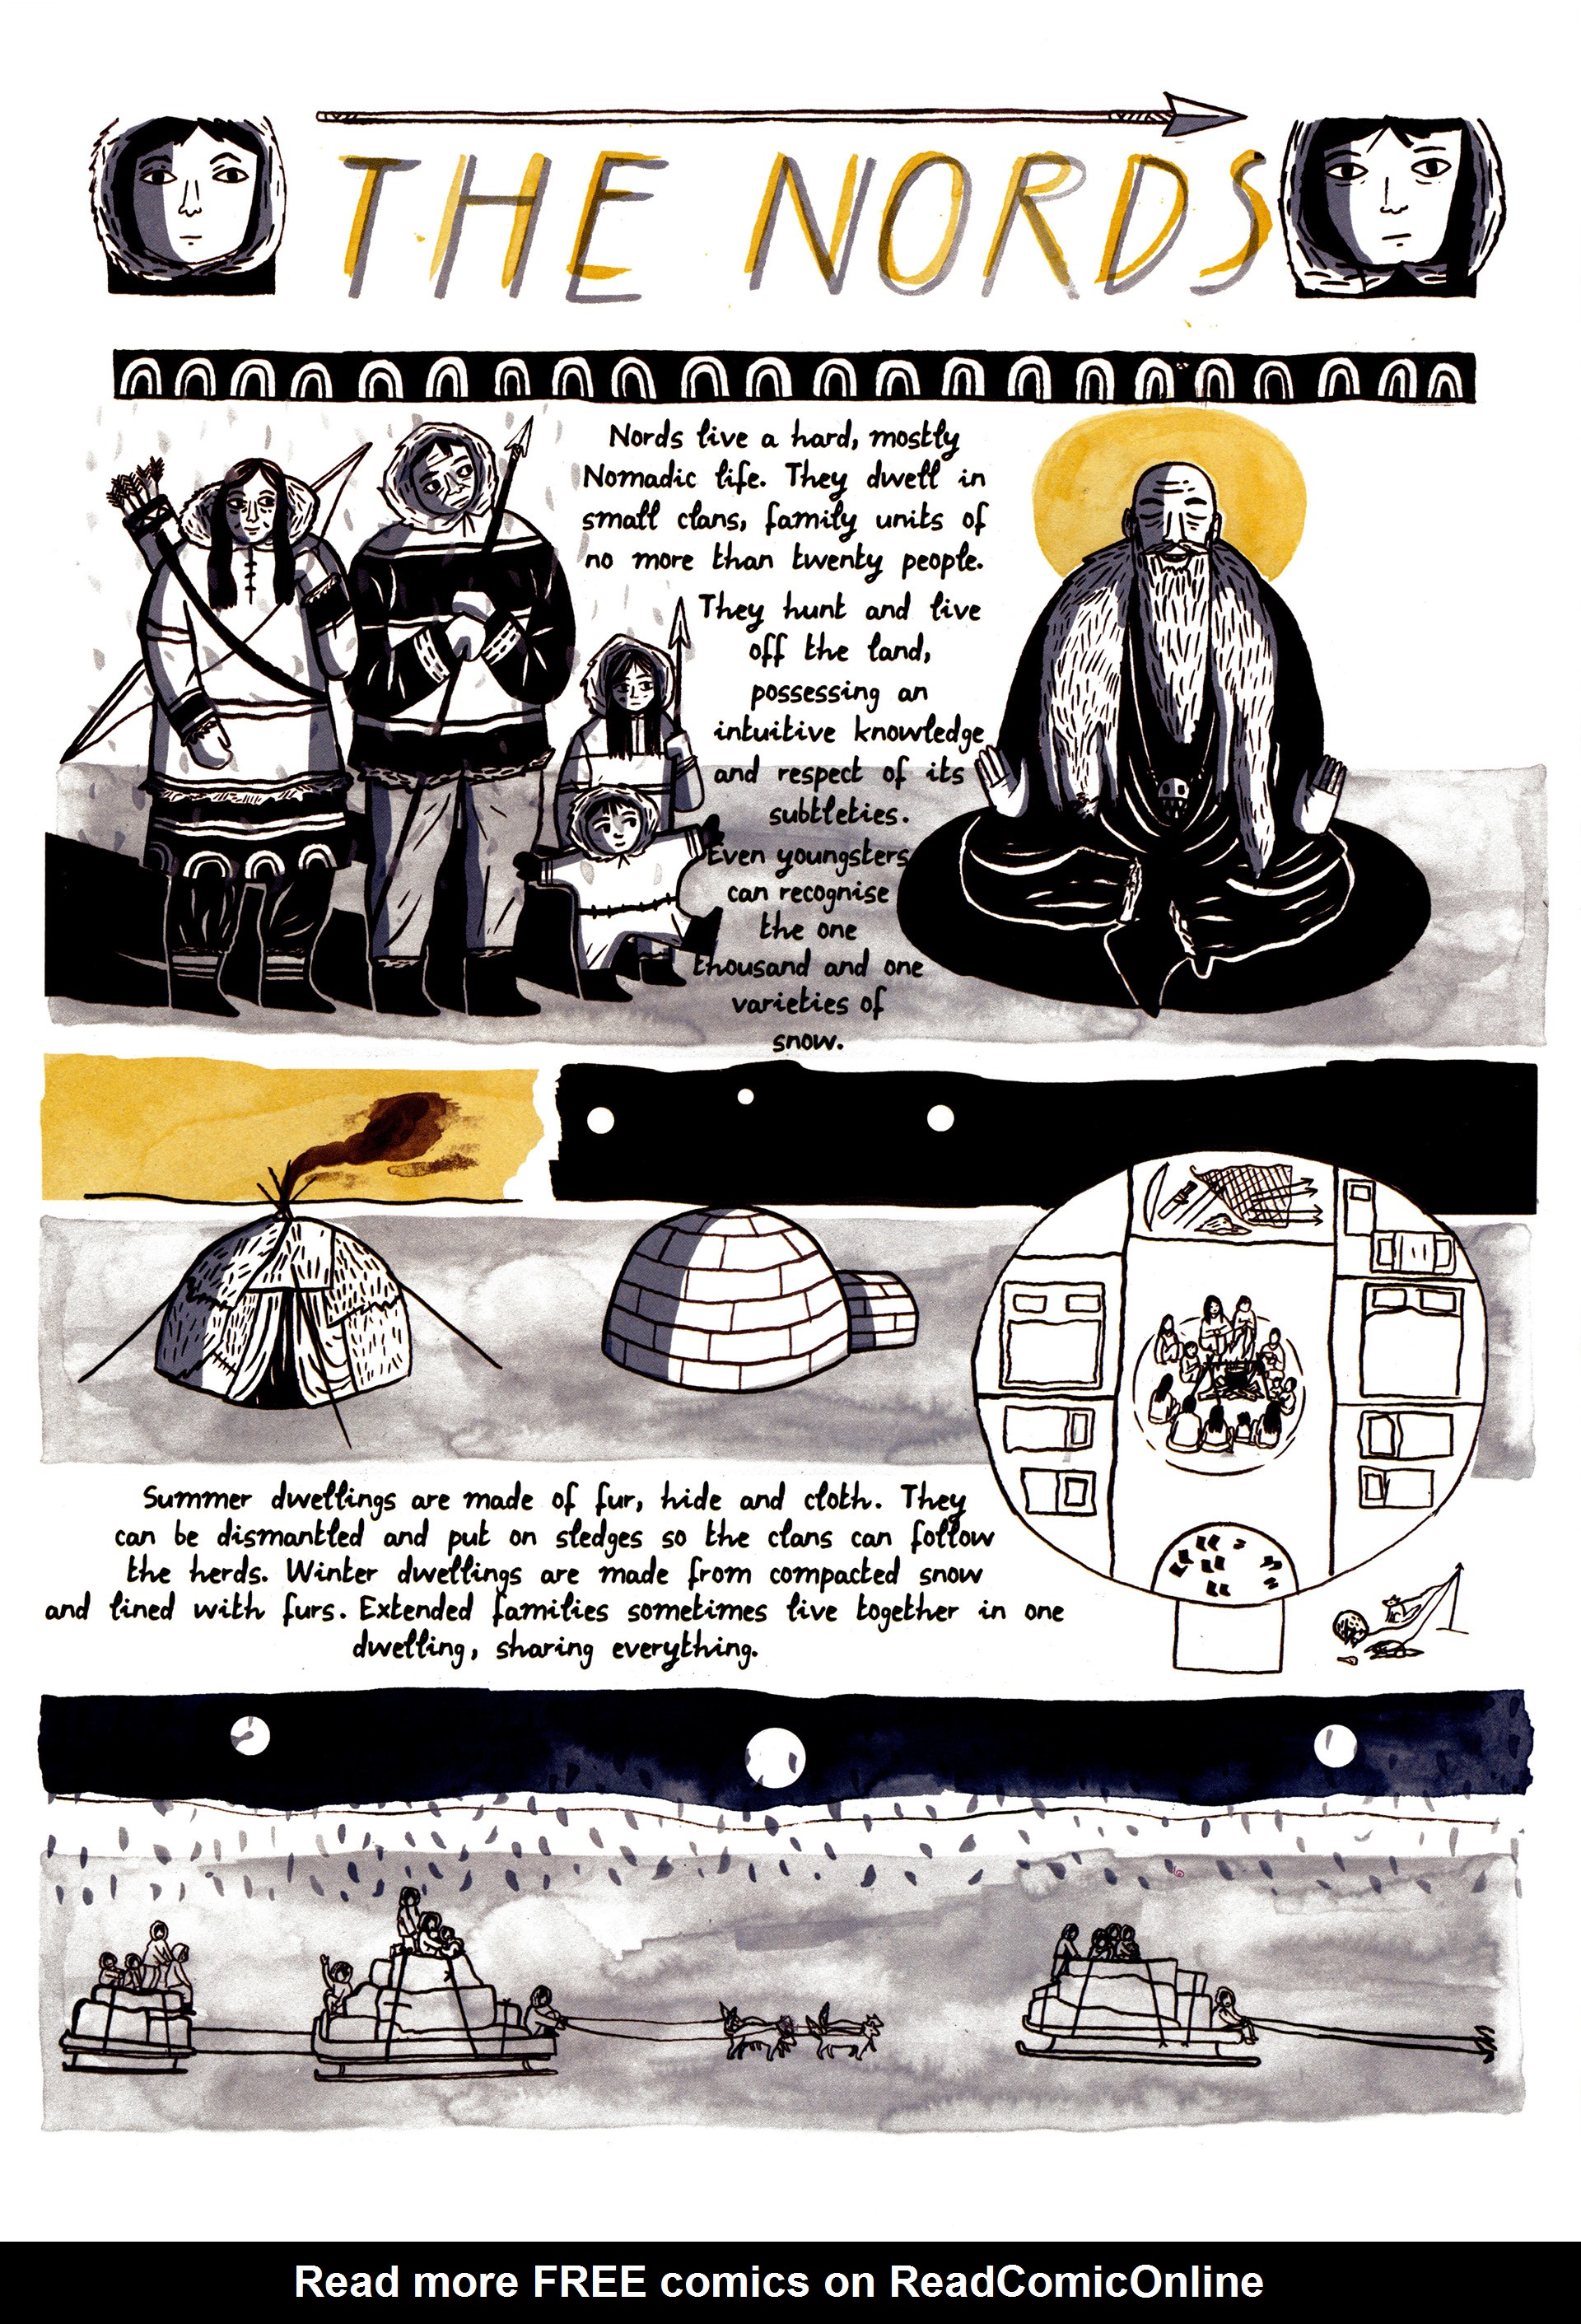 THE NORDS
Nords live a hard, mostly
Nomadic life. They dwell in
small clans, family units of
no more than twenty people.
They hunt and live
off the land,
possessing an
intuitive knowledge
and respect of its
subtleties.
Even youngsters
can recognise
the one
thousand and one
varieties of
snow.
Summer dwellings are made of fur, hide and cloth. They
can be dismantled and put on sledges so the clans can follow
the herds. Winter dwellings are made from compacted snow
and lined with furs. Extended families sometimes live together in one
dwelling, sharing everything.
Read more FREE comics on ReadComicOnline